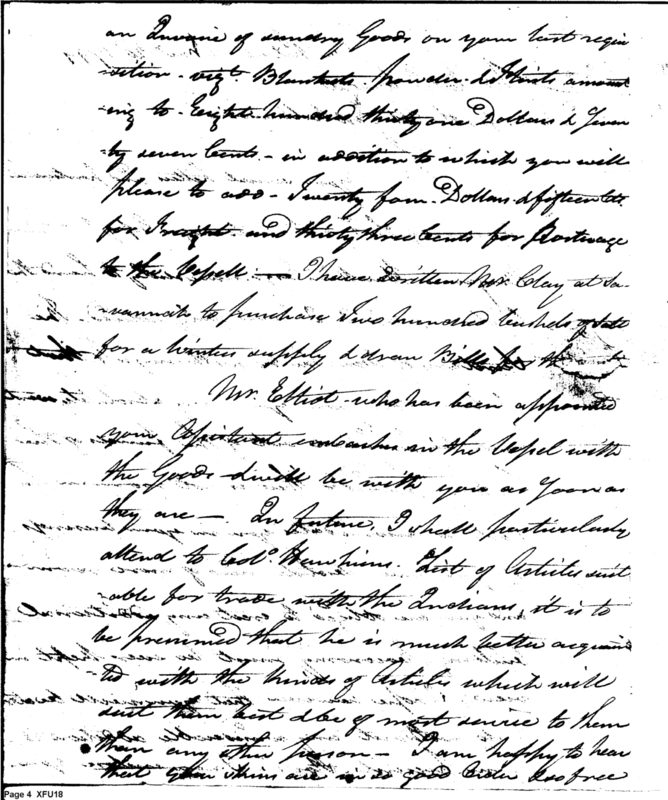 an Invoice of sundry Goods on your last requi
-sition - vizt. Blankets powder & Flints amount
ing to - Eight hundred thirty one Dollars & Seven
ty seven Cents - in addition to which you will
please to add - Twenty four Dollars & fifteen Cts.
for Freight and thirty three Cents for Portrage
to the Vessell. — I have written Mr. Clay at Sa-
-vannah to purchase Two hundred bushels of Salt
for a winters supply & draw Bills for the
Mr. Elliot who has been appointed
your Assistant embarks in the Vessel with
the Goods & will be with you as Soon as
they are —. In future, I shall particularly
attend to Colo. Hawkins. List of Articles suit
-able for trade with the Indians, it is to
be presumed that he is much better acquain
-ted with the kinds of Articles which will
suit them best & be of most service to them
than any other person — I am happy to hear
that your skins are in so good order & so free
Page 4 XFU18